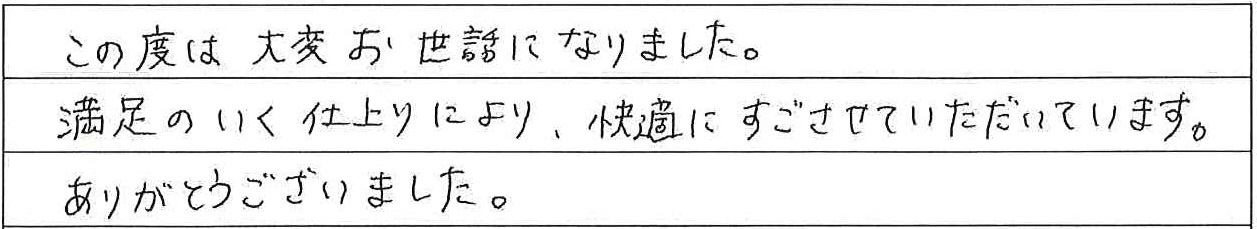 この度は大変お世話になりました。
満足のいく仕上りにより、快適にすごさせていただいています。
ありがとうございました。